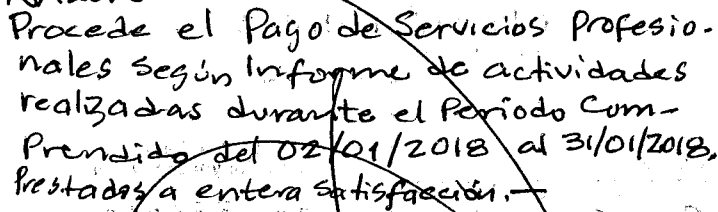 Procede el Pago de Servicios Profesio-
nales según Informe de actividades
realzadas durante el Periodo Com-
Prendido del 02/01/2018 al 31/01/2018,
Prestados a entera satisfacción.-